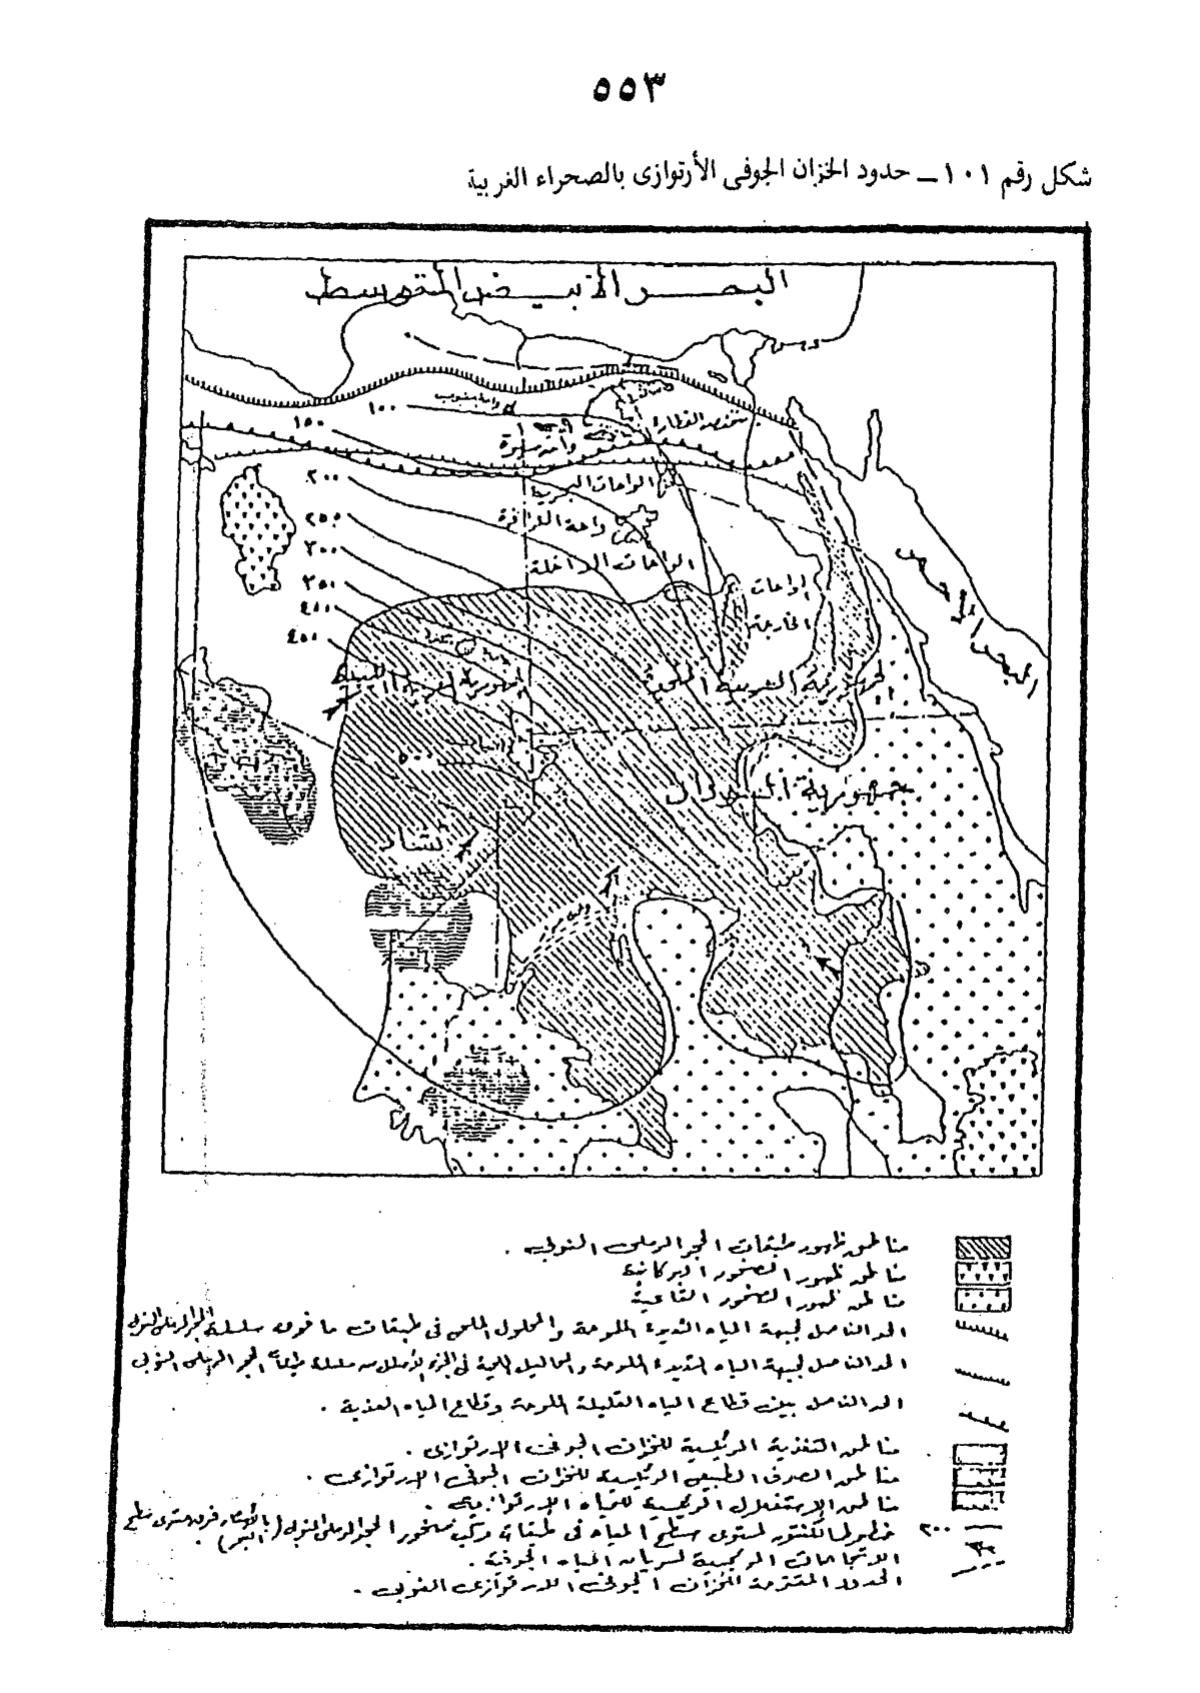 ٥٥٣
شكل رقم ١٠١ – حدود الخزان الجوفى الأرتوازى بالصحراء الغربية
البحر الأبيض المتوسط
١٠٠
واحة جغبوب
منخفض القطارة
١٥٠
واحة سيوة
٢٠٠
الواحات البحرية
٢٥٠
واحة الفرافرة
٣٠٠
الواحات الداخلة
٣٥٠
الواحات
الخارجة
٤٠٠
٤٥٠
البحر الأحمر
الجمهورية العربية الليبية
جمهورية العربية المتحدة
٥٠٠
جمهورية السودان
تشاد
مناطق ظهور طبقات الحجر الرملى النوبى .
مناطق ظهور الصخور البركانية
مناطق ظهور الصخور القاعية
الحد الفاصل لجبهة المياه الشديدة الملوحة والمحلول الملحى فى طبقات ما فوق سلسلة الحجر الرملى النوبى
الحد الفاصل لجبهة المياه الشديدة الملوحة والمحاليل الملحية فى الجزء الأسفل من سلسلة طبقات الحجر الرملى النوبى
الحد الفاصل بين قطاع المياه القليلة الملوحة وقطاع المياه العذبة .
مناطق التغذية الرئيسية للخزان الجوفى الارتوازى .
مناطق الصرف الطبيعى الرئيسية للخزان الجوفى الارتوازى .
مناطق الاستغلال الرئيسية للمياه الارتوازية .
٢٠٠ خطوط الكنتور لمستوى سطح المياه فى طبقات مركب صخور الحجر الرملى النوبى (بالأمتار فوق مستوى سطح البحر) .
الاتجاهات الرئيسية لسريان المياه الجوفية .
الحدود المقترحة للخزان الجوفى الارتوازى النوبى .